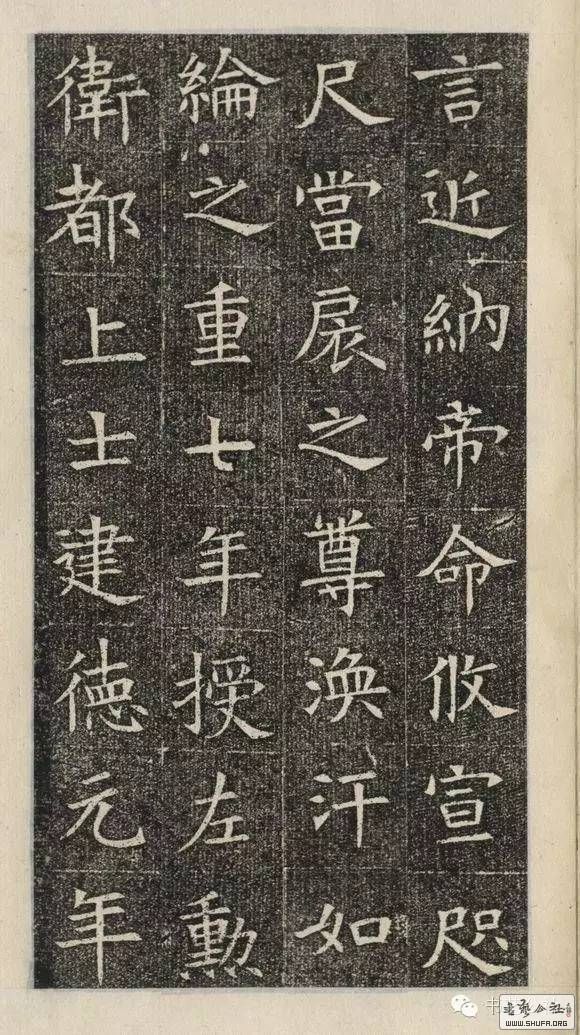 言近納帝命攸宣咫
尺當扆之尊渙汗如
綸之重七年授左勳
衛都上士建德元年
WWW.SHUFA.ORG